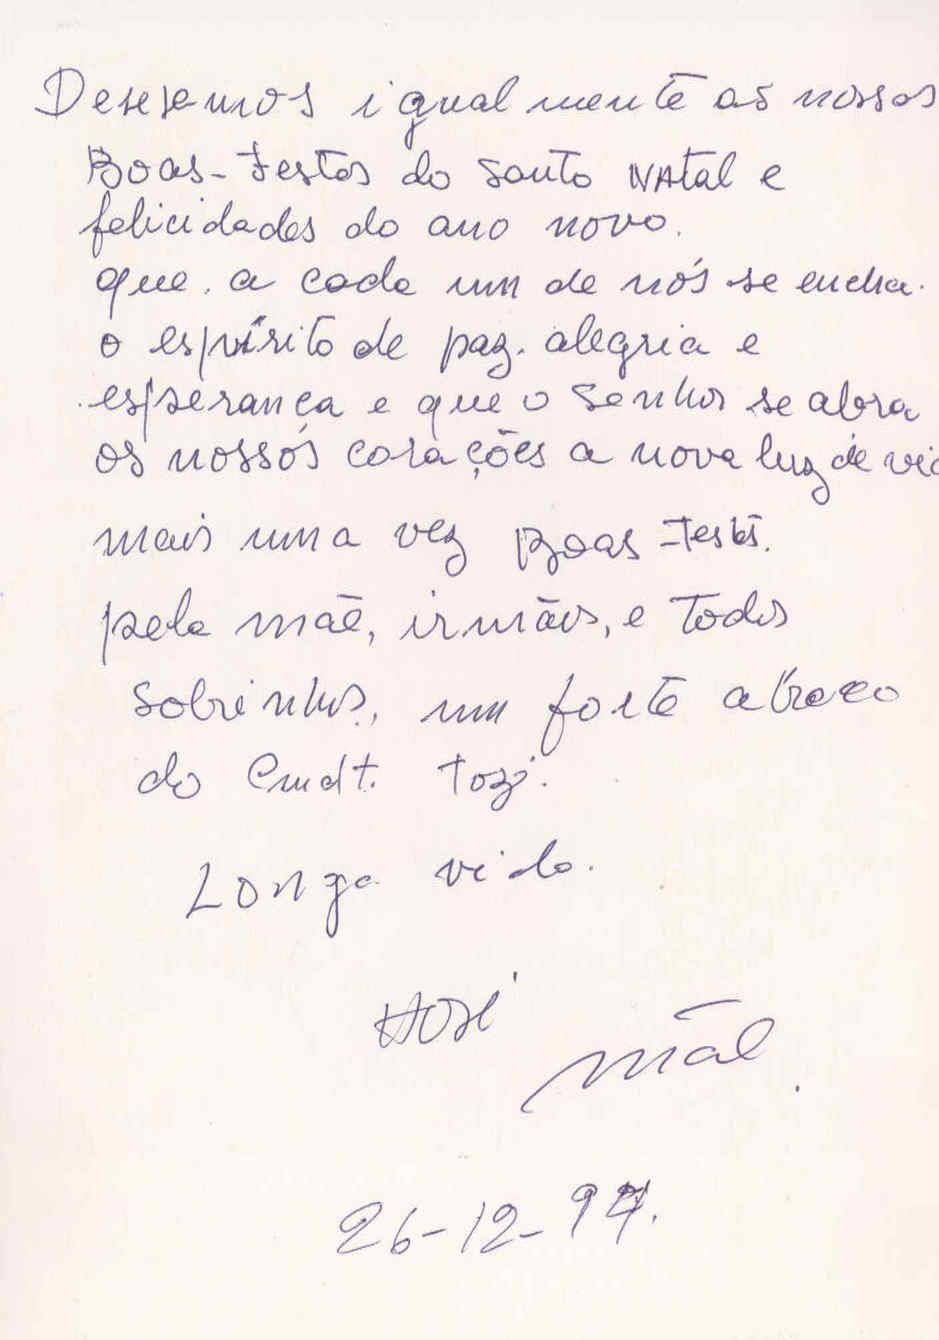 Desejamos igualmente as nossas
Boas-festas do santo NAtal e
felicidades do ano novo.
que. a cada um de nós se encha.
o espírito de paz. alegria e
esperança e que o senhor se abra
os nossós corações a nova luz de vid
mais uma vez Boas-festas.
pela mãe, irmãos, e todos
sobrinhos, um forte abraco
do Cmdt. Tozé.
Longa vida.
José
mãe.
26-12-97.